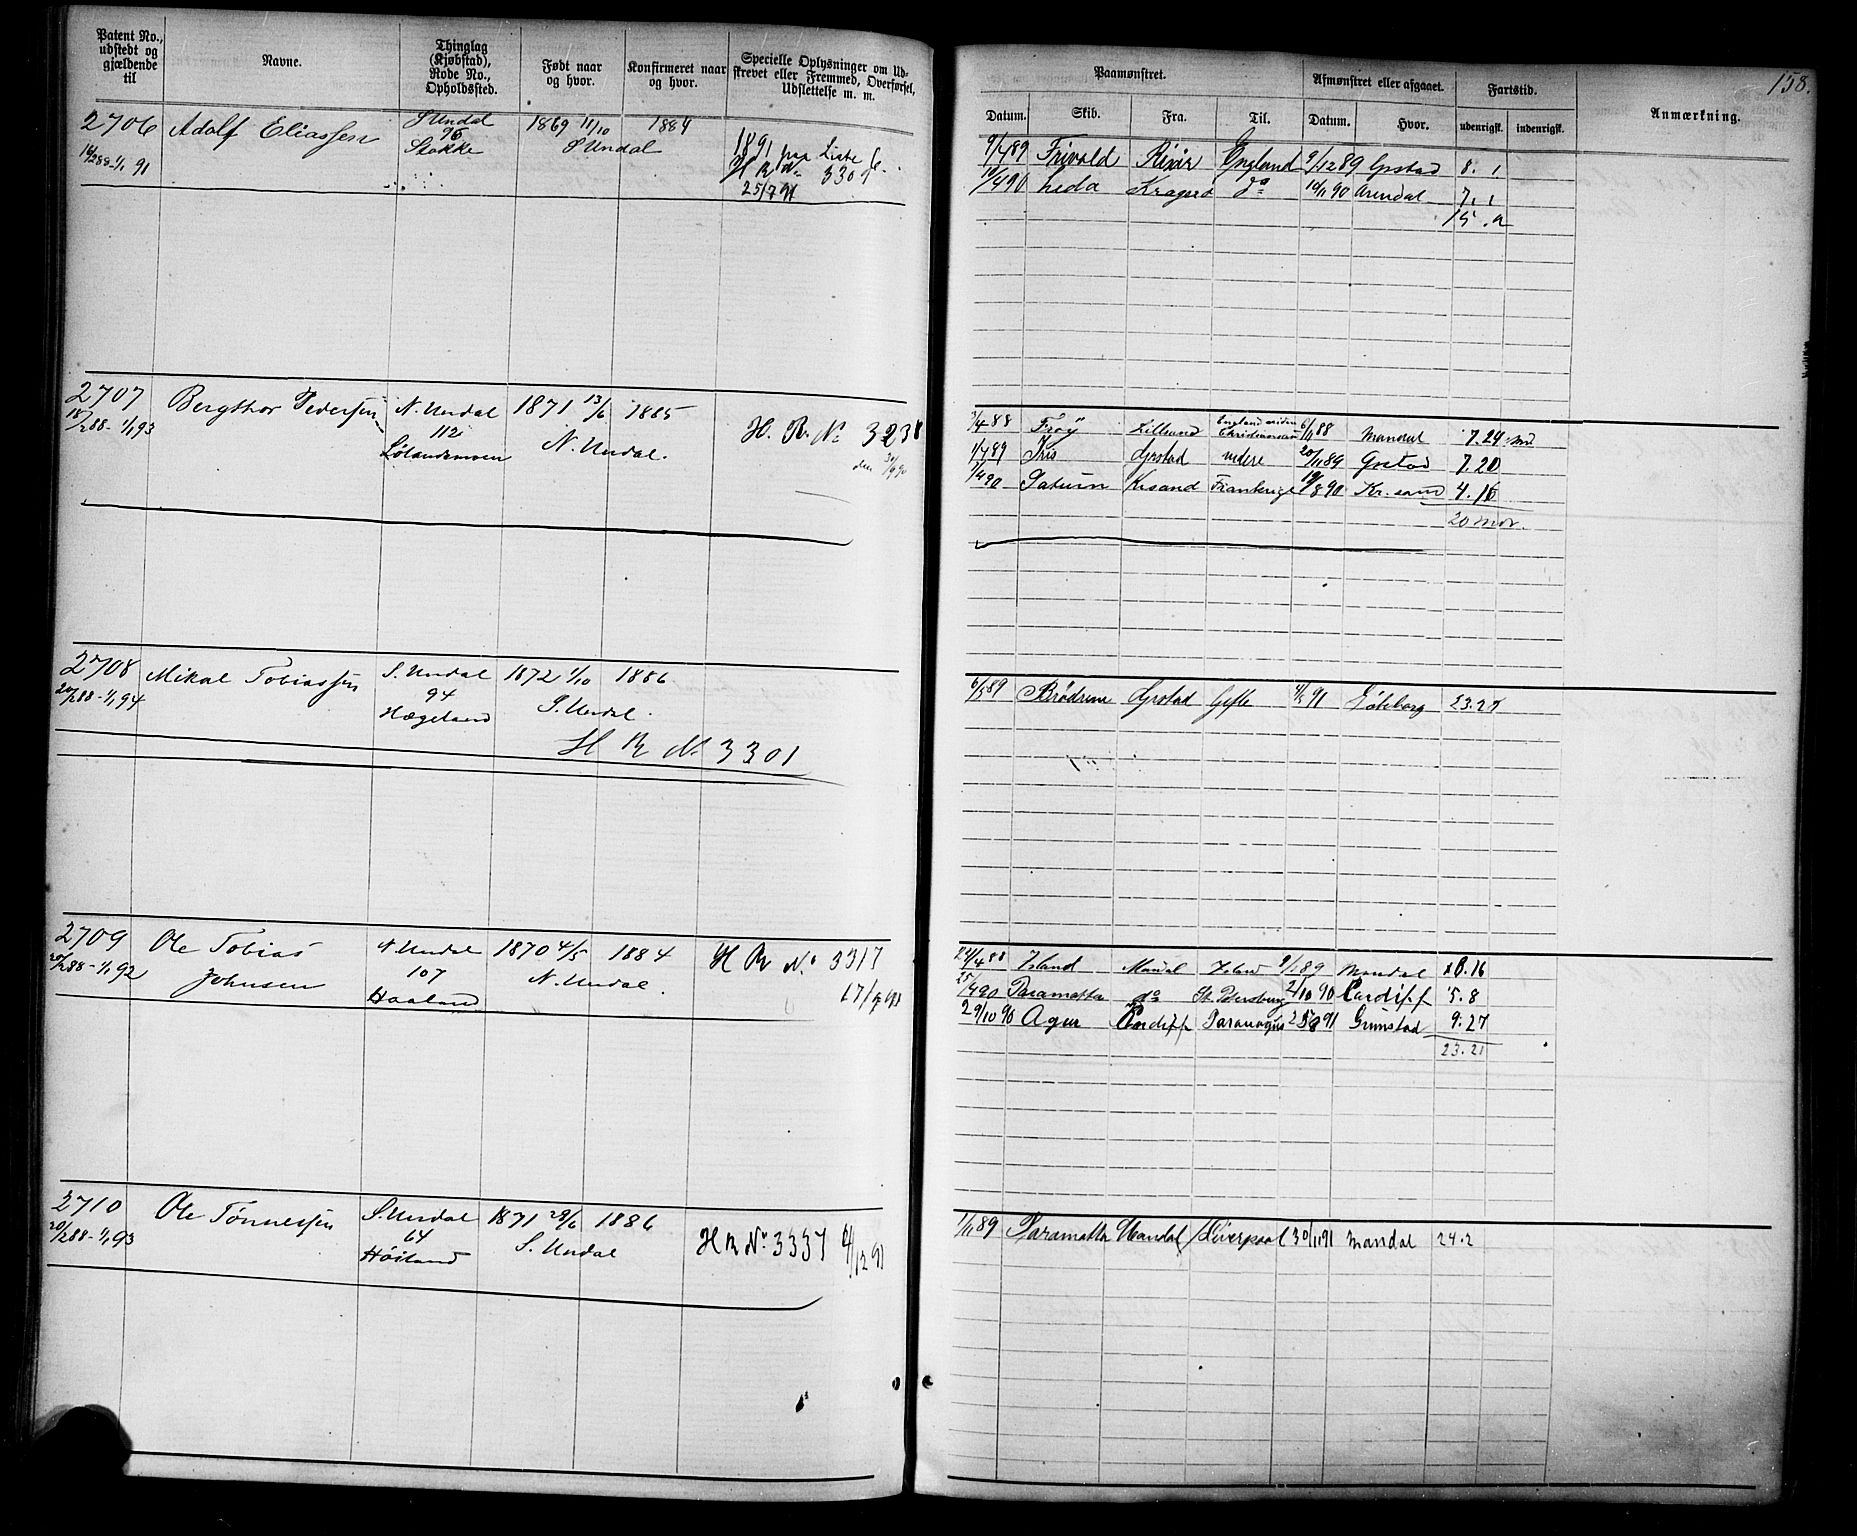 158.
Patent No., udstedt og gjældende til
Navne.
Thinglag (Kjøbstad), Rode No., Opholdssted.
Født naar og hvor.
Konfirmeret naar og hvor.
Specielle Oplysninger om Udskrevet eller Fremmed, Overførsel, Udslettelse m. m.
Paamønstret.
Afmønstret eller afgaaet.
Fartstid.
Anmærkning.
Datum. Skib. Fra. Til. Datum. Hvor. udenrigsk. indenrigsk.
2706 Adolf Eliassen S Undal 1869 11/10 1884
95 S Undal
Stokke
1891 paa Liste C.
H R No 3309
25/7 91
9/4 89 Frivold Risør England 9/12 89 Grstad 8. 1
10/4 90 Leda Kragerø do 10/11 90 Arendal 7. 1
15. 2
2707 Bergthor Pedersen N. Undal 1871 13/6 1885
18/2 88 - 1/1 93 112 N. Undal. H. R. No 3238
Lølandsmoen den 30/9 90
3/4 88 Frøy Lillesand England siden Christiansand 6/11 88 Mandal 7.29 md
1/4 89 Iris Grstad videre 20/11 89 Grstad 7.20
7/4 90 Saturn Krsand Frankrige 19/8 90 Kr.sand 4.16
20 mdr.
2708 Mikal Tobiassen S. Undal 1872 1/10 1886
20/2 88 - 1/1 94 94 S. Undal.
Hægeland
H R No 3301
6/5 89 Brødrene Grstad Gefle 4/5 91 Göteborg 23.27
2709 Ole Tobias N. Undal 1870 4/5 1884 H R No 3317
20/2 88 - 1/1 92 Johnsen 107 N. Undal. 17/9 91
Haaland
24/4 88 Island Mandal Island 9/1 89 Mandal 8.16
25/4 90 Paramatta do St. Petersburg 2/10 90 Cardiff 5.8
29/10 90 Agur Cardiff Paranagua 25/8 91 Grimstad 9.27
23.21
2710 Ole Tønnessen S. Undal 1871 28/6 1886
20/2 88 - 1/1 93 64 S. Undal H R No 3337 4/12 91
Høiland
1/11 89 Paramatta Mandal Liverpool 30/11 91 Mandal 24.2